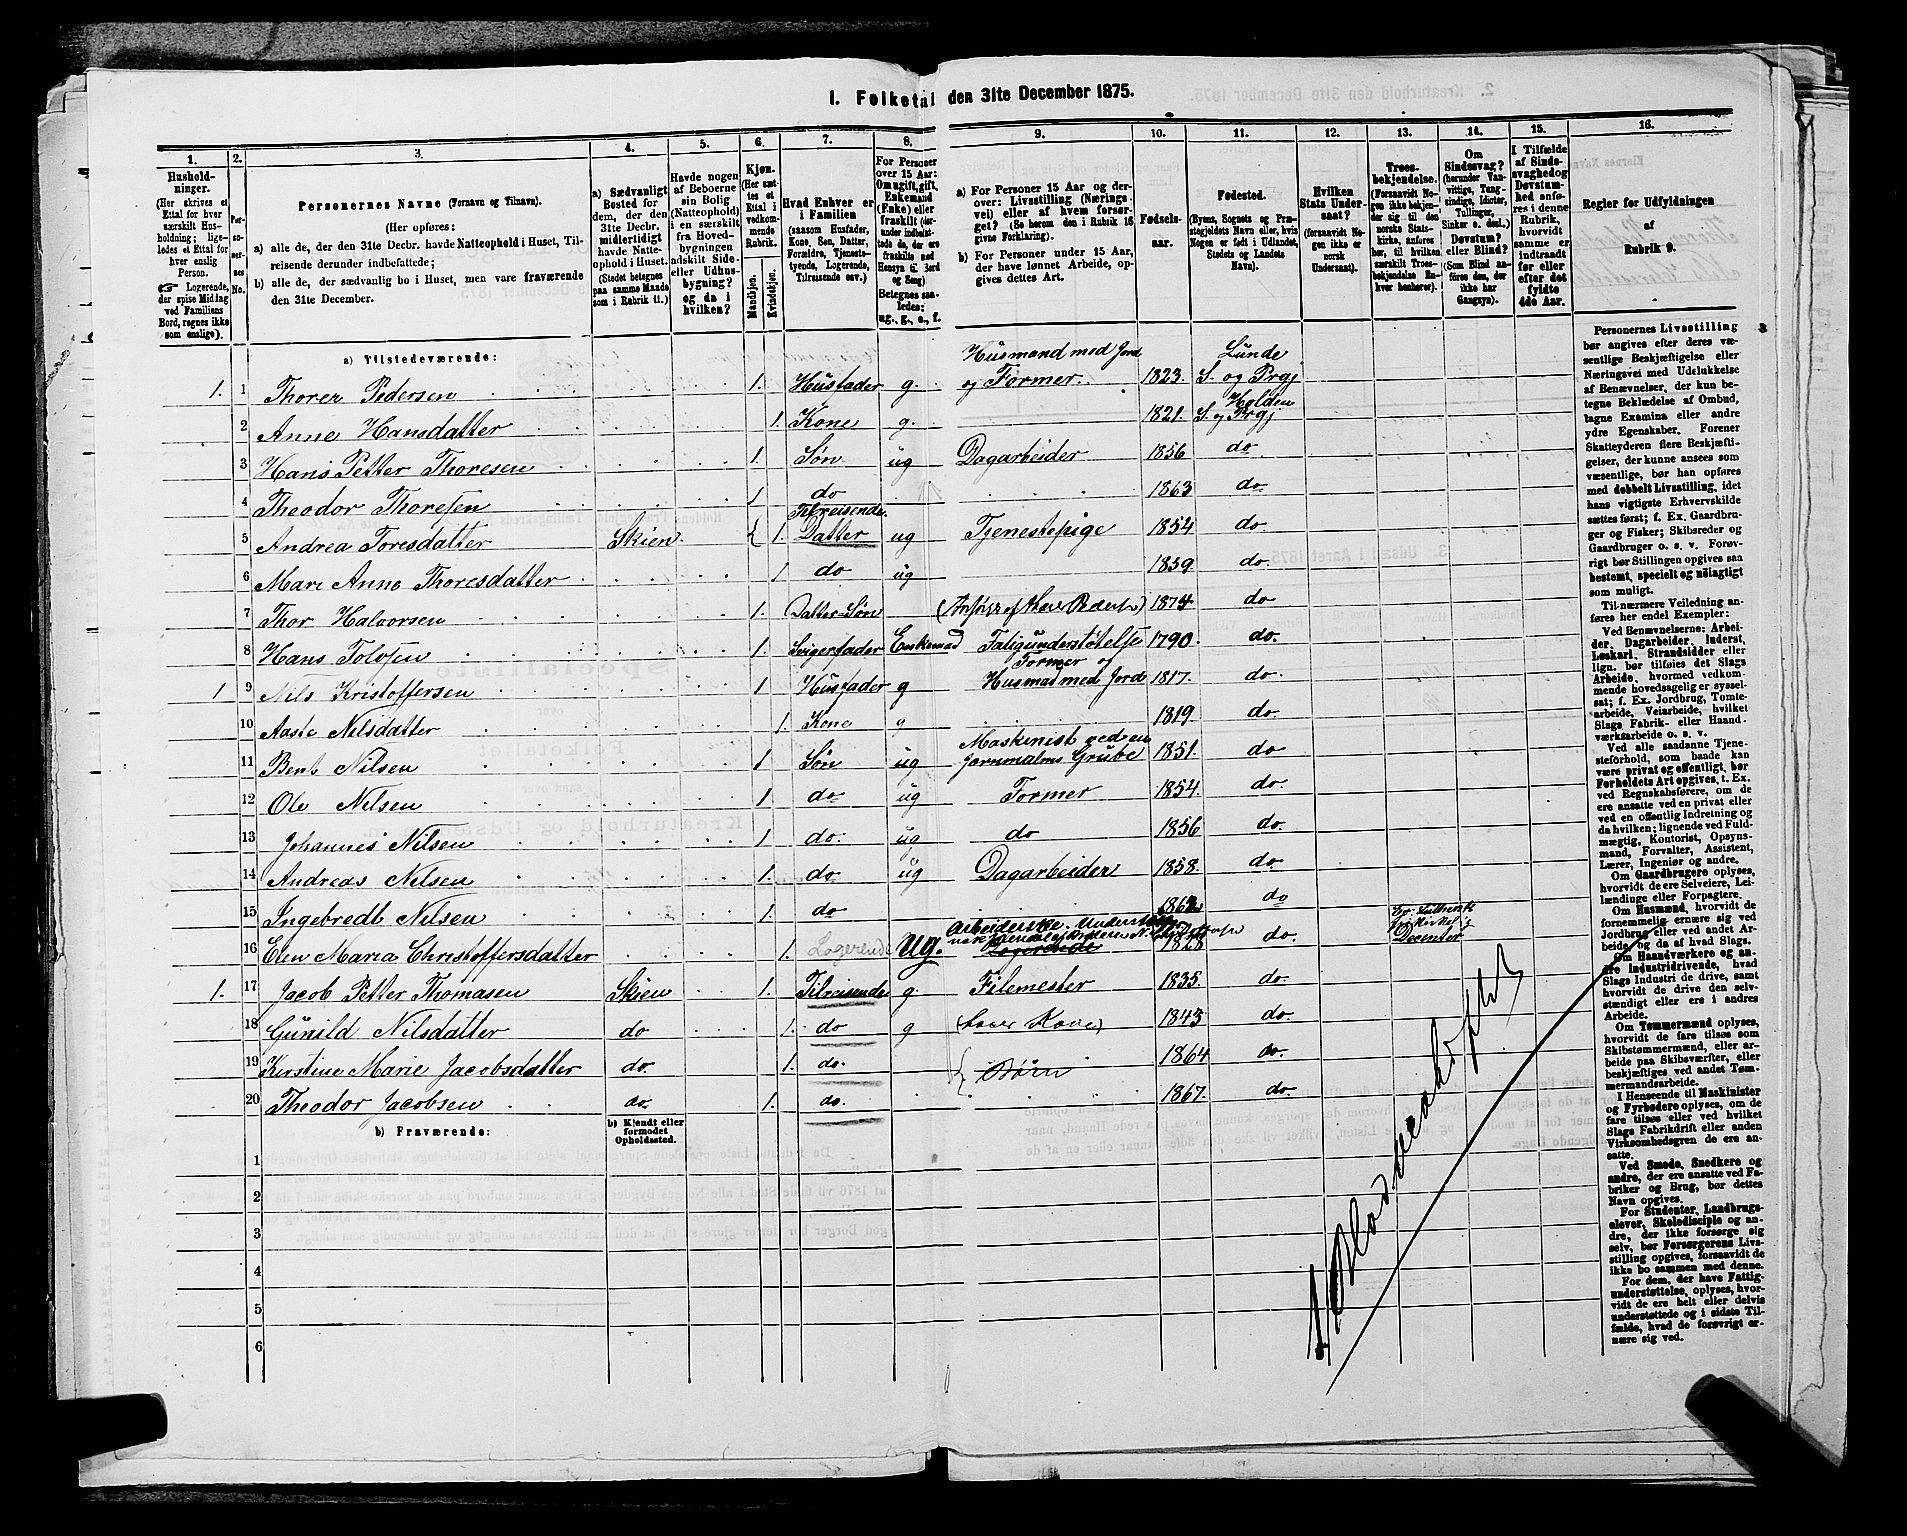 I. Folketal den 31te December 1875.
1. 2. 3. 4. 5. 6. 7. 8. 9. 10. 11. 12. 13. 14. 15. 16.
Husholdninger.
(Her skrives et Ettal for hver særskilt Husholdning; ligeledes et Ettal for hver enslig Person.
Logerende, der spise Middag ved Familiens Bord, regnes ikke som enslige).
Personernes No.
Personernes Navne (Fornavn og Tilnavn).
(Her opføres:
a) alle de, der den 31te Decbr. havde Natteophold i Huset, Tilreisende derunder indbefattede;
b) alle de, der sædvanlig bo i Huset, men vare fraværende den 31te December.
a) Sædvanligt Bosted for dem, der den 31te Decbr. midlertidigt havde Natteophold i Huset. (Stedet betegnes paa samme Maade som i Rubrik 11.)
Havde nogen af Beboerne sin Bolig (Natteophold) i en særskilt fra Hovedbygningen adskilt Side- eller Udhusbygning? og da i hvilken?
Kjøn. (Her sættes et Ettal i vedkommende Rubrik.
Mandskjøn. Kvindekjøn.
Hvad Enhver er i Familien
(saasom Husfader, Kone, Søn, Datter, Forældre, Tjenestetyende, Logerende, Tilreisende osv.)
For Personer over 15 Aar: Om ugift, gift, Enkemand (Enke) eller fraskilt (derunder indbefattede de, der ere fraskilte med Hensyn til Bord og Seng)
Betegnes saaledes: ug., g., e., f.
a) For Personer 15 Aar og derover: Livsstilling (Næringsvei) eller af hvem forsørget? (Se herom den i Rubrik 16 givne Forklaring).
b) For Personer under 15 Aar, der have lønnet Arbeide, opgives dettes Art.
Fødselsaar.
Fødested.
(Byens, Sognets og Præstegjeldets Navn eller, hvis Nogen er født i Udlandet, Stedets og Landets Navn).
Hvilken Stats Undersaat?
(forsaavidt Nogen ikke er norsk Undersaat).
Troesbekjendelse.
(Forsaavidt Nogen ikke bekjender sig til den norske Statskirke, anføres her, til hvilken særskilt Troesbekjendelse Enhver henhører).
Om Sindssvag? (herunder Vanvittige, Tungsindige, Idioter, Tullinger, Sinker o. desl.)
Døvstum? eller Blind?
(Som Blind anføres den, der ikke har Gangsyn).
I Tilfælde af Sindssvaghed og Døvstumhed anføres i denne Rubrik, hvorvidt samme er indtraadt før eller efter det fyldte 4de Aar.
Regler for Udfyldningen af Rubrik 9.
a) Tilstedeværende:
1. 1 Thorer Pedersen 1. Husfader g. Husmand med Jord og Former. 1823. Lunde S. og Prgj
2 Anne Hansdatter 1. Kone g. 1821. Holden S. og Prgj
3 Hans Petter Thoresen 1. Søn ug Dagarbeider 1856 do
4 Theodor Thoresen 1 do 1863 do
5 Andrea Toresdatter Skien. 1. Tilreisende Datter ug Tjenestepige 1854 do
6 Mari Anne Thoresdatter 1 do ug 1859 do.
7 Thor Halvorsen 1. Datter-Søn 1874 do
8 Hans Tolofsen 1. Svigerfader Enkemand Fatigunderstøttelse 1790 do.
1 9 Nils Kristoffersen 1 Husfader g Former og Husmand med Jord 1817. do.
10 Aaste Nilsdatter 1. Kone g 1819. do.
11 Bent Nilsen 1 Søn ug Maskinist ved en Jernmalms Grube 1851. do
12 Ole Nilsen 1 do. ug Former 1854. do.
13 Johannes Nilsen 1 do. ug do 1856 do.
14 Andreas Nilsen 1. do. ug Dagarbeider 1858. do
15 Ingebredt Nilsen 1. do do
16 Elen Maria Christoffersdatter 1. Logerende ug. Arbeiderske. 1828 do. Decenter
1. 17 Jacob Petter Thomasen Skien 1. Tilreisende g Filemester 1835. do.
18 Gunild Nilsdatter do 1. do g Kone) 1843 do.
19 Kirstine Marie Jacobsdatter do. 1. do. Børn 1864 do.
20 Theodor Jacobsen do. 1. do. 1867. do.
b) Fraværende:
b) Kjendt eller formodet Opholdssted.
1
2
3
4
5
6
Personernes Livsstilling bør angives efter deres væsentlige Beskjæftigelse eller Næringsvei med Udelukkelse af Benævnelser, der kun betegne Beklædelse af Ombud, tagne Examina eller andre ydre Egenskaber. Forener Skatteyderen flere Beskjæftigelser, der kunne ansees som væsentlige, bør han opføres med dobbelt Livsstilling, idet hans vigtigste Erhvervskilde sættes først; f. Ex. Gaardbruger og Fisker; Skibsreder og Gaardbruger o. s. v. Forøvrigt bør Stillingen opgives saa bestemt, specielt og nøiagtigt som muligt.
Til nærmere Veiledning anføres her endel Exempler:
Ved Benævnelserne: Arbeider, Dagarbeider, Inderst, Løskarl, Strandsidder eller lign. bør tilføies det Slags Arbeide, hvormed vedkommende hovedsagelig er sysselsat; f. Ex. Jordbrug, Tomtearbeide, Veiarbeide, hvilket Slags Fabrik- eller Haandværksarbeide o. s. v.
Ved alle saadanne Tjenesteforhold, som baade kan være privat og offentligt, bør Forholdets Art opgives, f. Ex. ved Regnskabsførere, om de ere ansatte ved en privat eller ved en offentlig Indretning og da hvilken; lignende ved Fuldmægtig, Kontorist, Opsynsmand, Forvalter, Assistent, Lærer, Ingeniør og andre.
Om Gaardbrugere oplyses, hvorvidt de ere Selveiere, Leilændinge eller Forpagtere.
Om Husmænd, hvorvidt de fornemmelig ernære sig ved Jordbrug eller ved andet Arbeide, og da af hvad Slags.
Om Haandværkere og andre Industridrivende, hvad Industri de drive, samt hvorvidt de drive den selvstændigt eller ere i andres Arbeide.
Om Tømmermænd oplyses, hvorvidt de fare tilsøs som Skibstømmermænd, eller arbeide paa Skibsværfter, eller beskjæftiges ved andet Tømmermandsarbeide.
I Henseende til Maskinister og Fyrbødere oplyses, om de fare tilsøs eller ved hvilket Slags Fabrikdrift eller anden Virksomhedsgren de ere ansatte.
Ved Smede, Snedkere og andre, der ere ansatte ved Fabriker og Brug, bør dettes Navn opgives.
For Studenter, Landbrugselever, Skoledisciple og andre, der ikke forsørge sig selv, bør Forsørgerens Livsstilling opgives, forsaavidt de ikke bo sammen med denne.
For dem, der have Fattigunderstøttelse, oplyses, hvorvidt de ere helt eller delvis understøttede og i sidste Tilfælde, hvad de forøvrigt ernære sig ved.